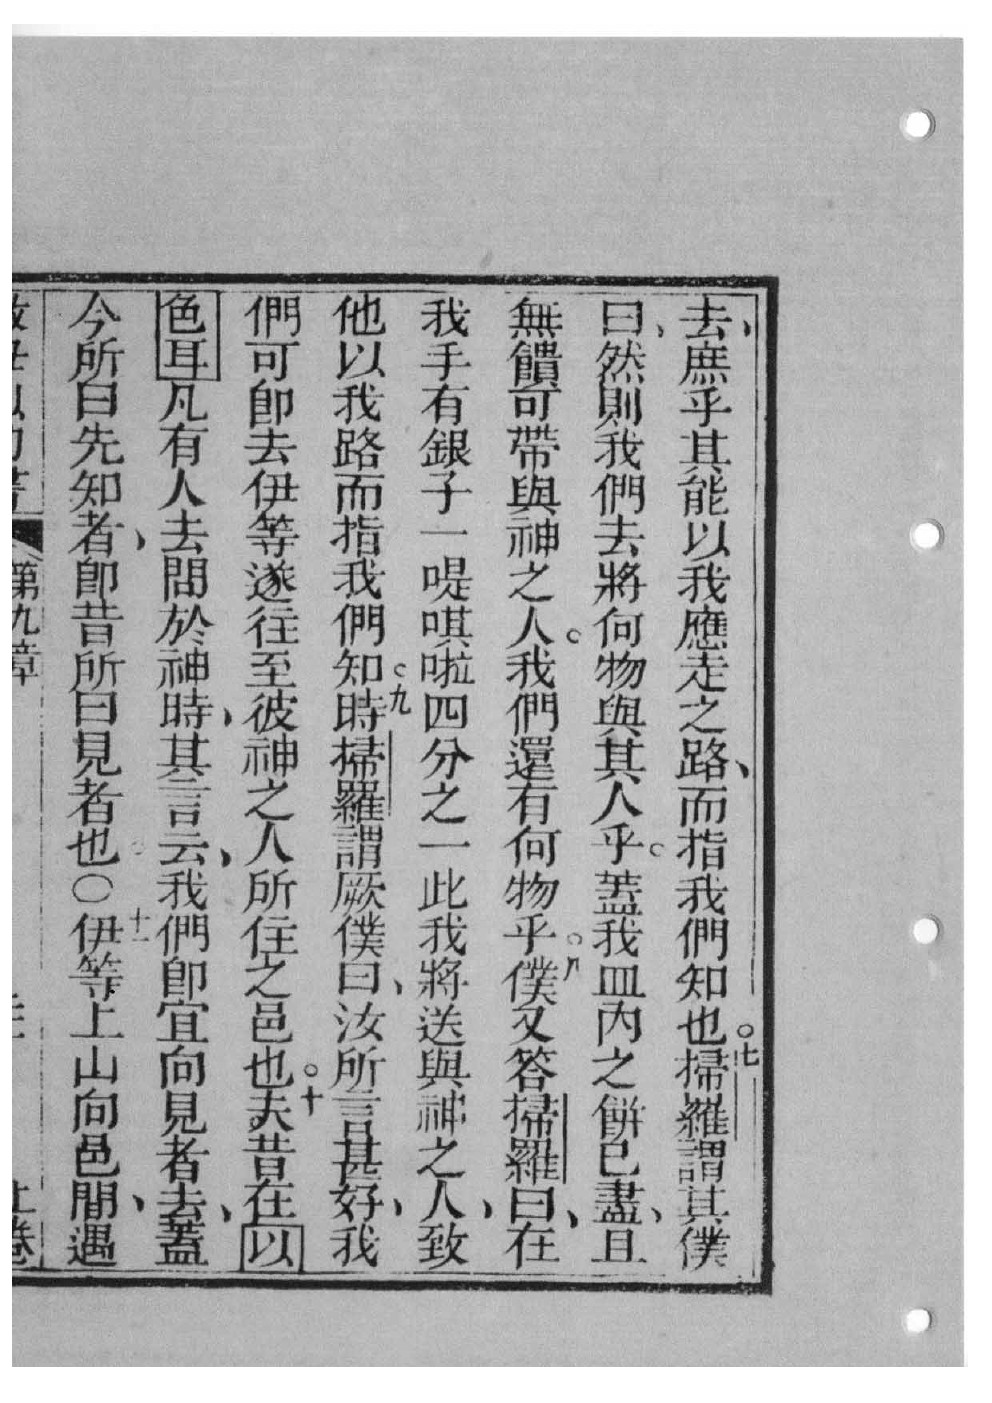 去、庶乎其能以我應走之路、而指我們知也。七掃羅謂其僕
曰、然則我們去將何物與其人乎。蓋我皿內之餅已盡、且
無饋可帶與神之人。我們還有何物乎。八僕又答掃羅曰、在
我手有銀子一啺唭啦四分之一此我將送與神之人、致
他以我路而指我們知。九時掃羅謂厥僕曰、汝所言甚好、我
們可卽去伊等遂往至彼神之人所住之邑也。十夫昔在以
色耳凡有人去問於神時、其言云、我們卽宜向見者去、蓋
今所曰先知者、卽昔所曰見者也○十一伊等上山向邑間、遇
第九章